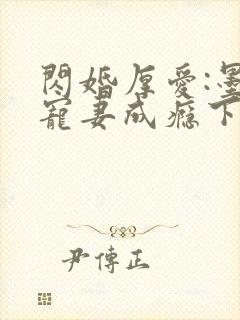 閃婚厚愛:墨
寵妻成癮下
尹傳正